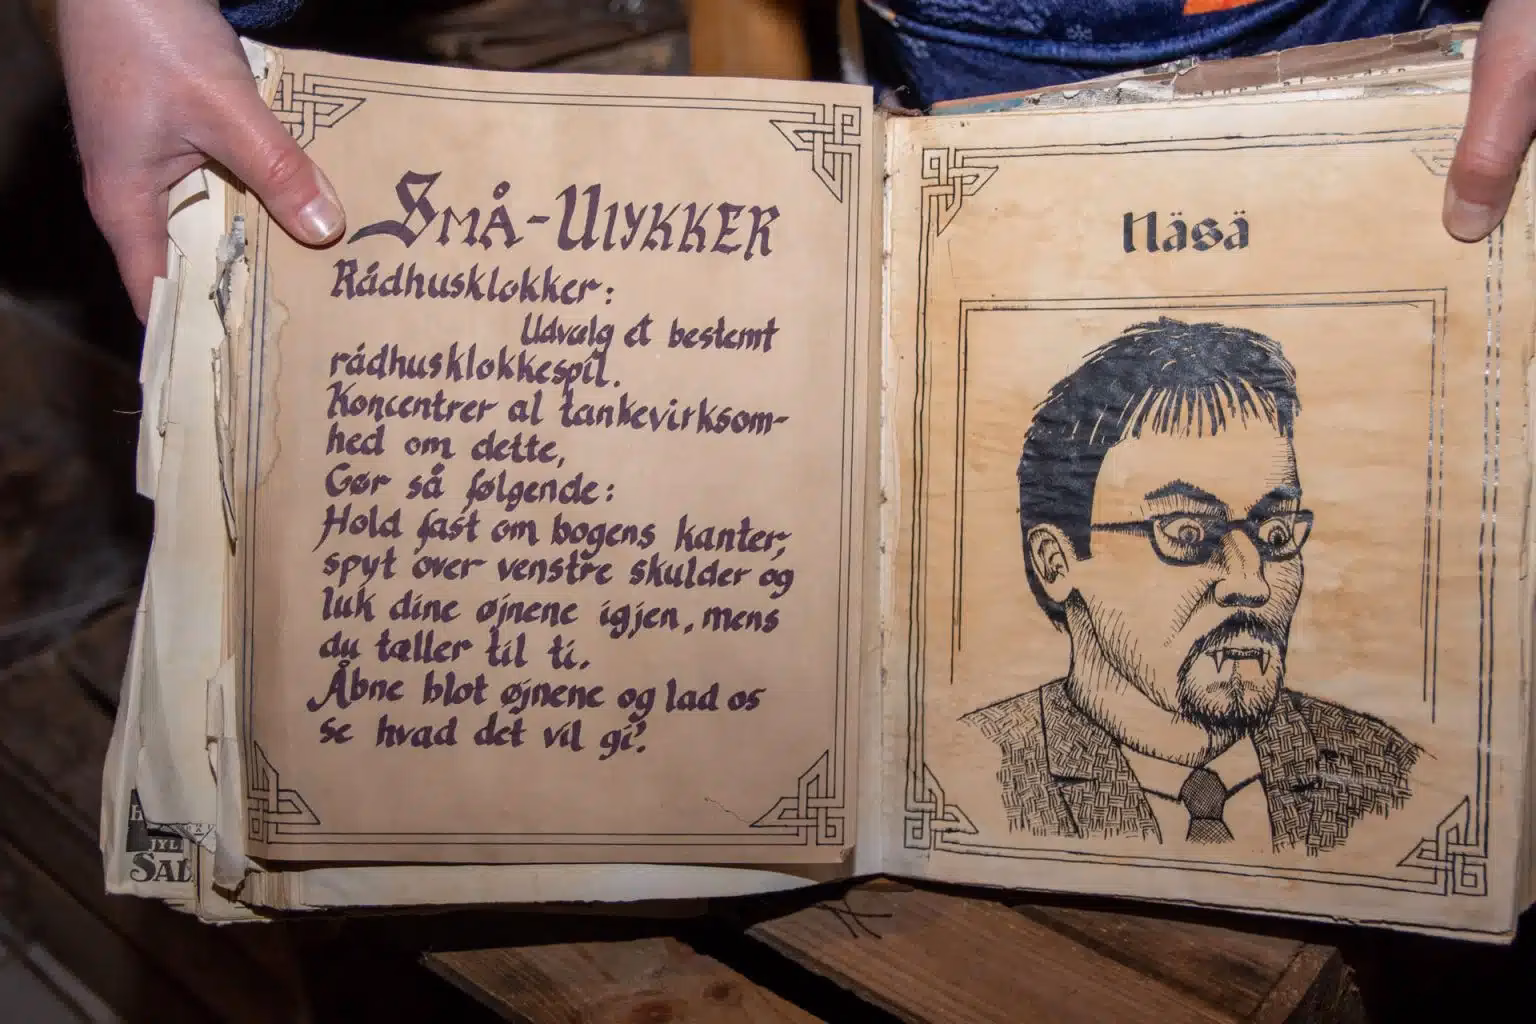 Små-Ulykker
Rådhusklokker:
Udvælg ét bestemt
rådhusklokkespil.
Koncentrer al tankevirksom-
hed om dette,
Gør så følgende:
Hold fast om bogens kanter,
spyt over venstre skulder og
luk dine øjnene igjen, mens
du tæller til ti.
Åbne blot øjnene og lad os
se hvad det vil gi'.
Näsä